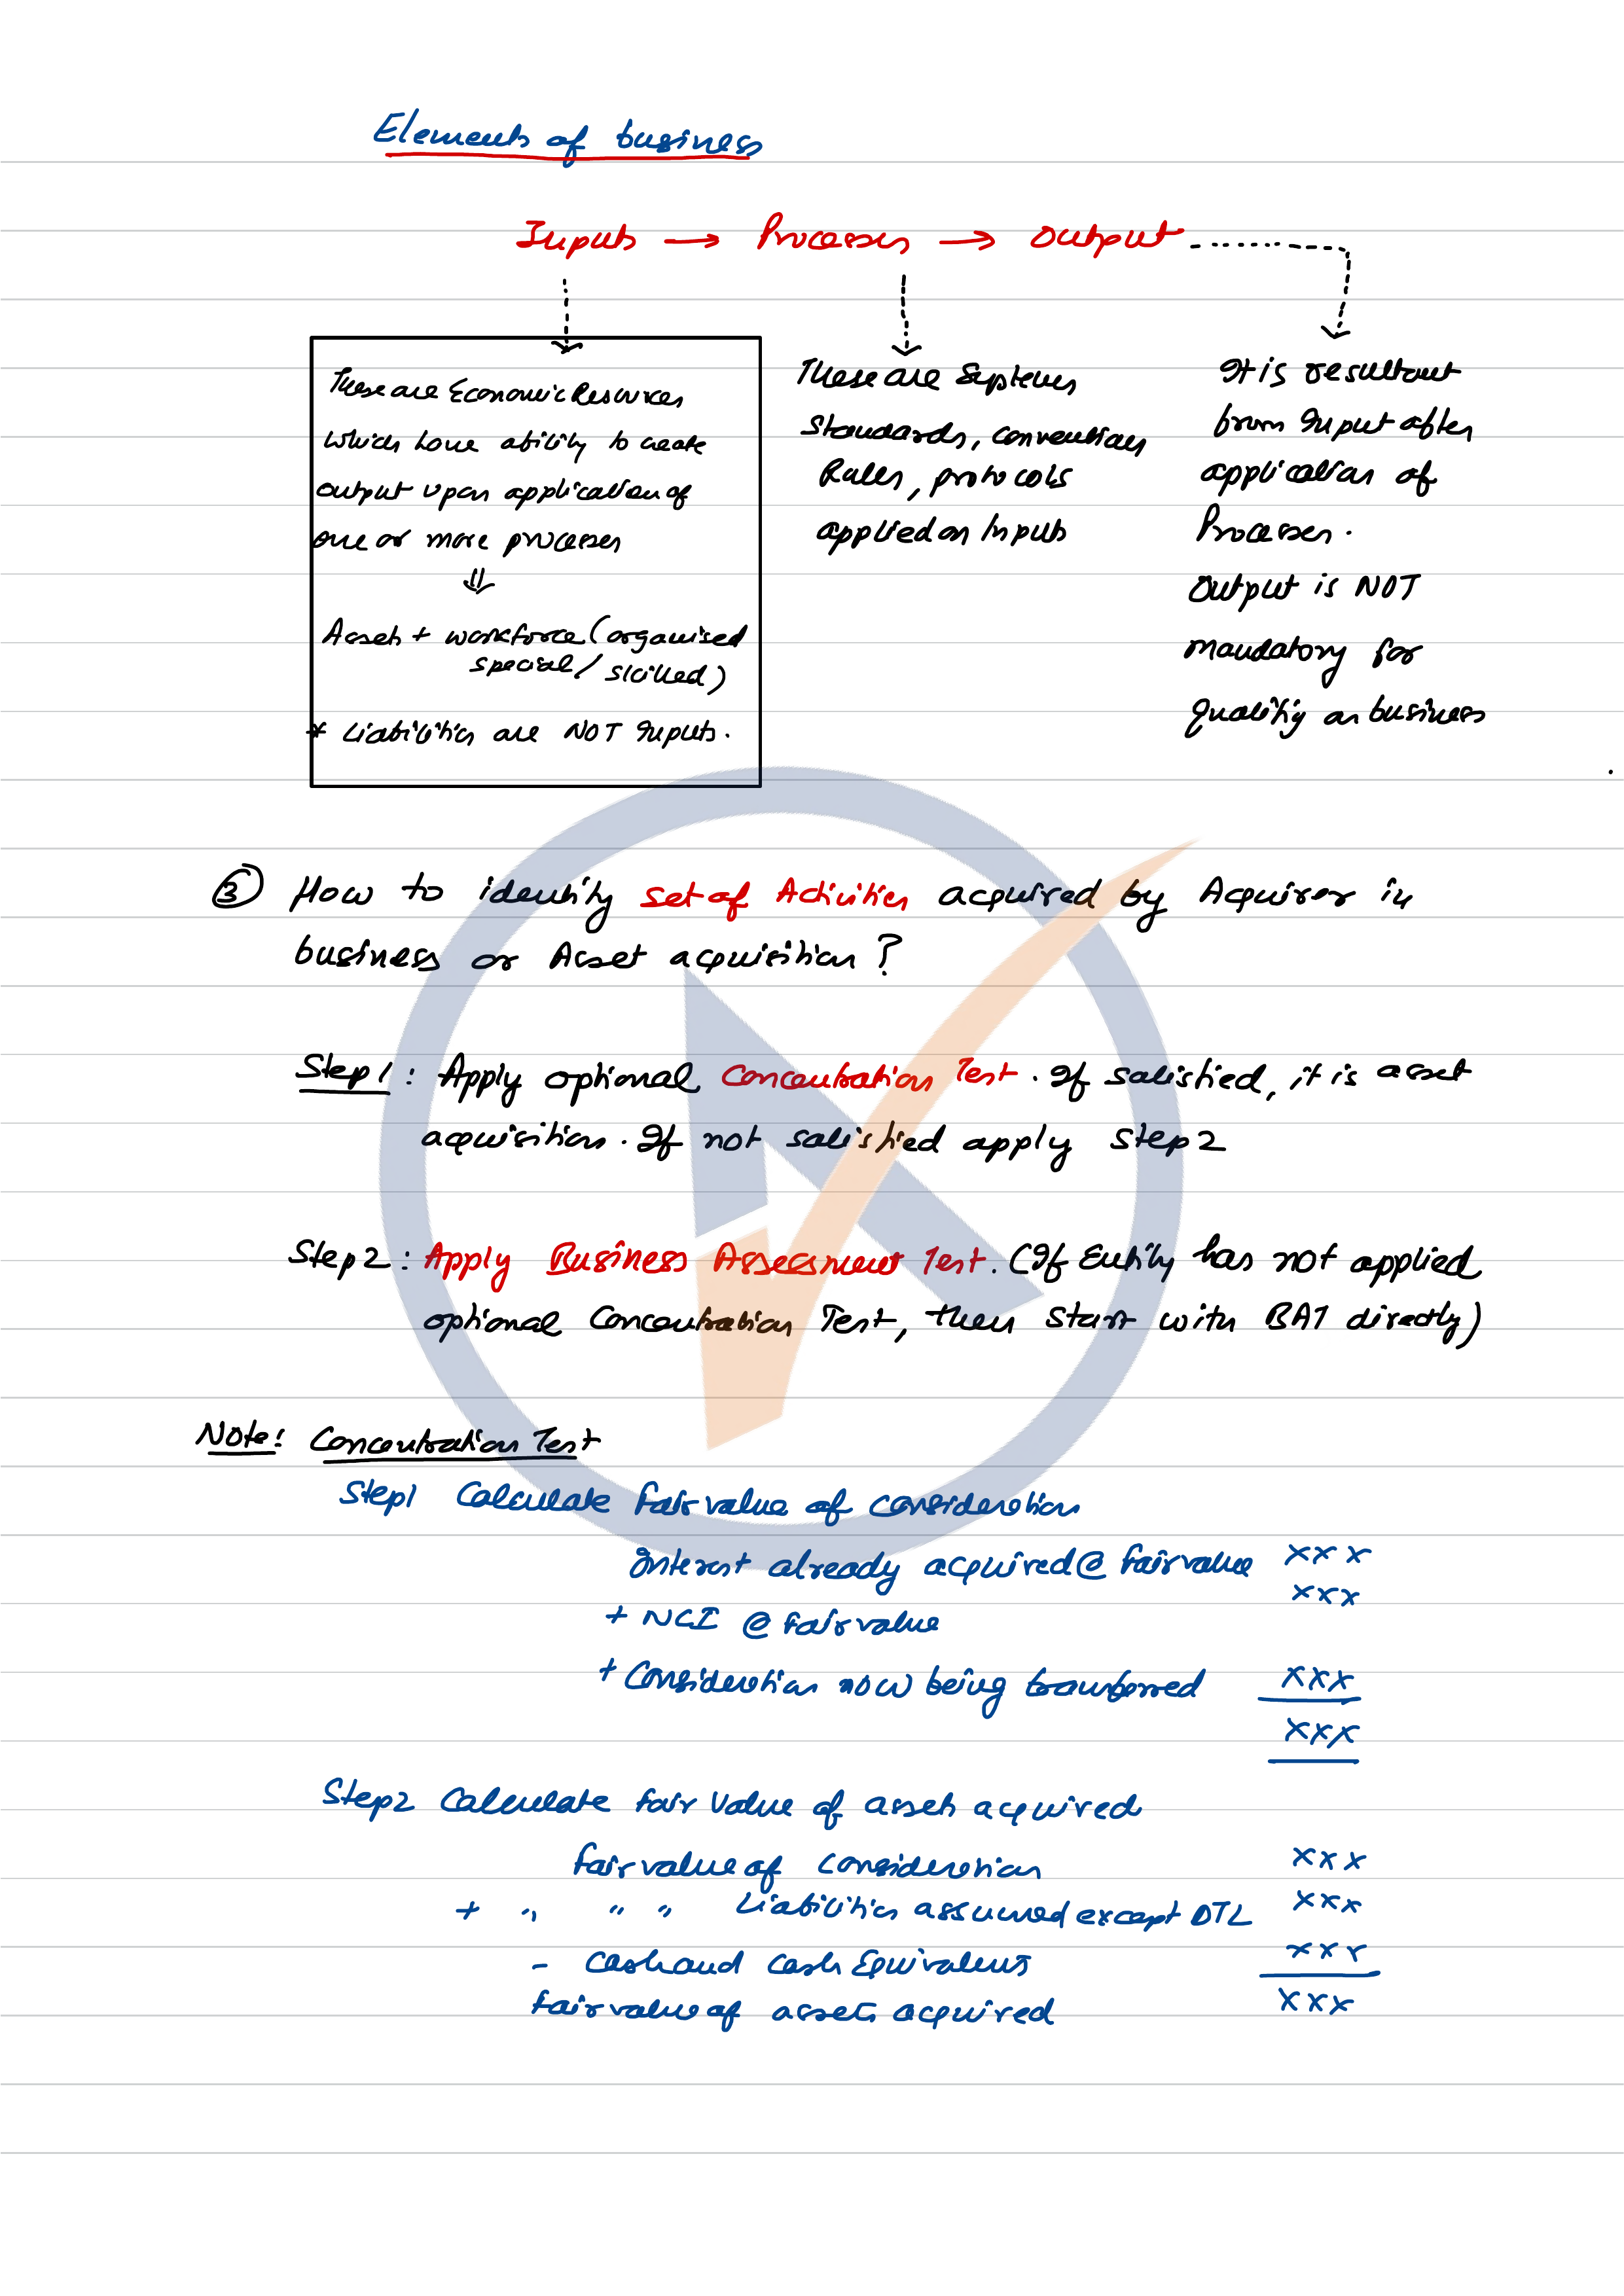 Elements of business
Inputs → Processes → Output
These are Economic Resources
which have ability to create
output upon application of
one or more processes
⇓
Assets + workforce (organised
special / skilled)
* Liabilities are NOT Inputs.
These are Systems
Standards, conventions
Rules, protocols
applied on Inputs
It is resultant
from Input after
application of
Processes.
Output is NOT
mandatory for
qualifying as business
③ How to identify set of Activities acquired by Acquirer in
business or Asset acquisition?
Step 1: Apply optional Concentration Test. If satisfied, it is asset
acquisition. If not satisfied apply Step 2
Step 2: Apply Business Assessment Test. (If Entity has not applied
optional Concentration Test, then Start with BAT directly)
Note: Concentration Test
Step 1 Calculate fair value of consideration
Interest already acquired @ fair value xxx
+ NCI @ fair value xxx
+ Consideration now being transferred xxx
xxx
Step 2 Calculate fair value of assets acquired
fair value of consideration xxx
+ " " " Liabilities assumed except DTL xxx
- Cash and cash Equivalents xxx
fair value of assets acquired xxx